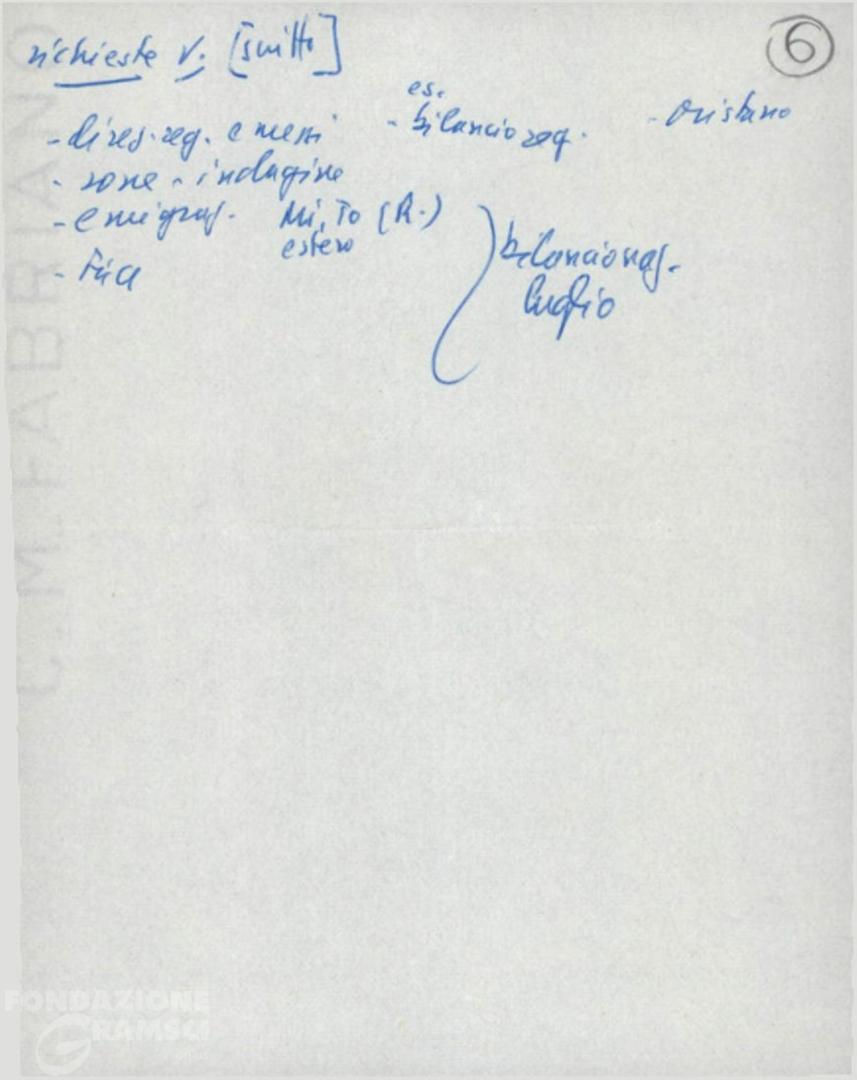 6
richieste v. [scritto]
es.
- direz. reg. e mezzi - bilancio reg. - Oristano
- zone - indagine
- emigraz. Mi, To (R.)
estero
bilancio naz.
luglio
C.M. FABRIANO
FONDAZIONE
GRAMSCI